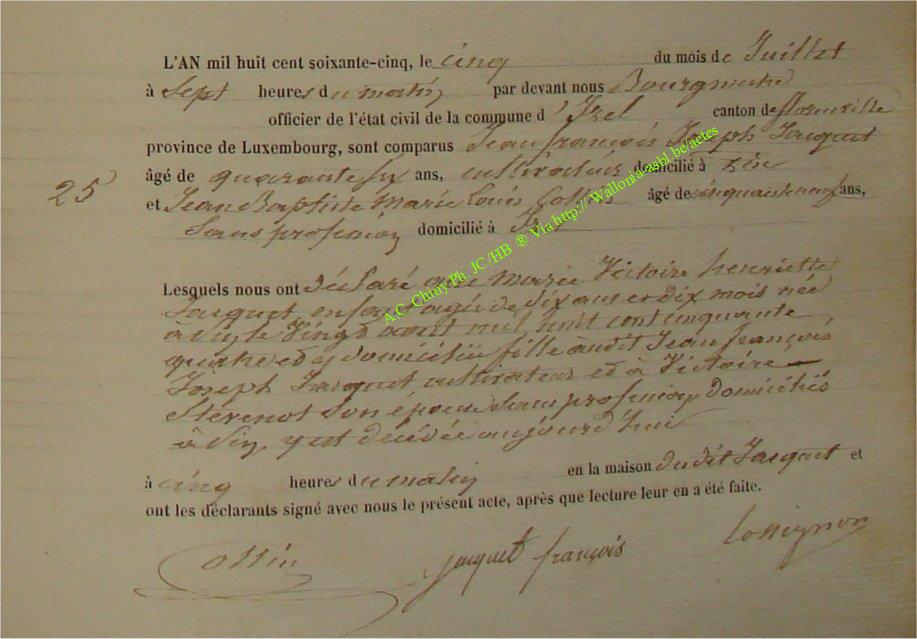 L'AN mil huit cent soixante-cinq, le cinq du mois de Juillet
à Sept heures du matin par devant nous Bourgmestre
officier de l'état civil de la commune d'Izel canton de florenville
province de Luxembourg, sont comparus Jean françois Joseph Jacquet
25 âgé de quarante six ans, cultivateur domicilié à
et Jean Baptiste Marie Louis Collin âgé de cinquante neuf ans,
Sans profession domicilié à
Lesquels nous ont déclaré que Marie Victoire henriette
Jacquet enfant agée de dix ans et dix mois née
le Vingt aout mil huit cent cinquante
quatre et y domiciliée fille audit Jean françois
Joseph Jacquet cultivateur et à Victoire
Stévenot Son épouse Sans profession domiciliés
à y est décédée aujourd'hui
à cinq heures du matin en la maison dudit Jacquet et
ont les déclarants signé avec nous le présent acte, après que lecture leur en a été faite.
Collin Jacquet françois
A.C. Chiny Ph. JC/HB ® Via http://Wallonia-asbl.be/actes